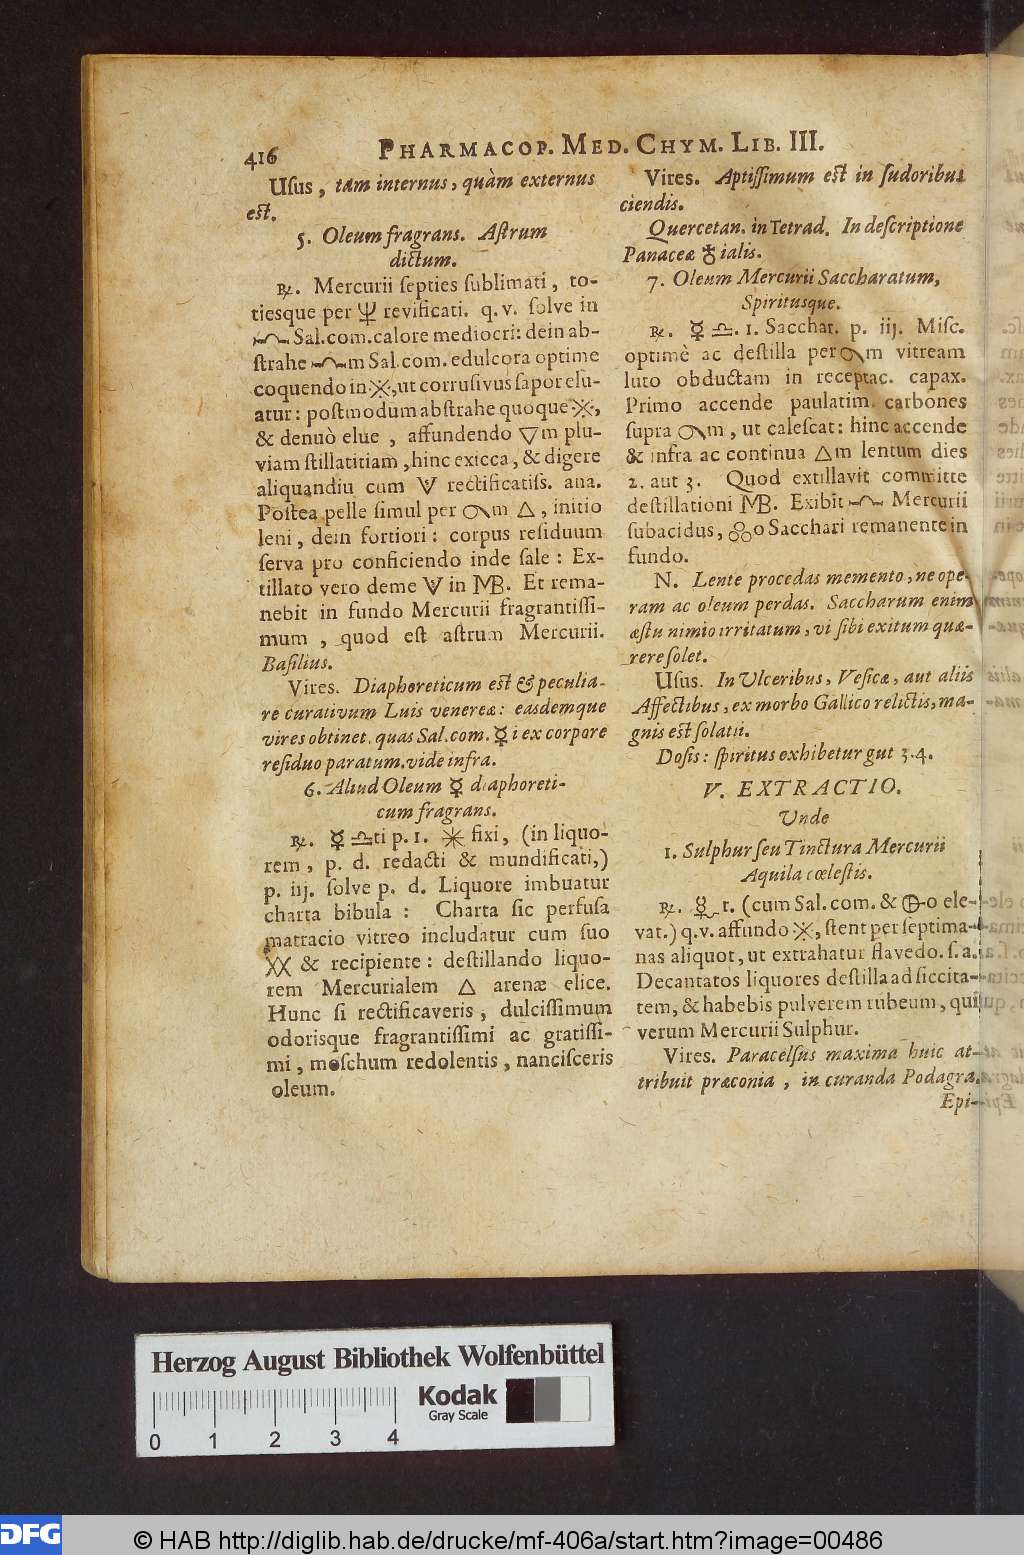 416
PHARMACOP. MED. CHYM. LIB. III.
Uſus, tam internus, quàm externus
eſt.
5. Oleum fragrans. Aſtrum
dictum.
℞. Mercurii ſepties ſublimati, to-
tiesque per 🜍 revificati. q. v. ſolve in
Sal. com. calore mediocri: dein ab-
ſtrahe m Sal. com. edulcora optime
coquendo in , ut corruſivus ſapor elu-
atur: poſtmodum abſtrahe quoque ,
& denuò elue, affundendo 🜄m plu-
viam ſtillatitiam, hinc exicca, & digere
aliquandiu cum rectificatiſs. ana.
Poſtea pelle ſimul per m △, initio
leni, dein fortiori: corpus reſiduum
ſerva pro conficiendo inde ſale: Ex-
tillato vero deme in MB. Et rema-
nebit in fundo Mercurii fragrantiſſi-
mum, quod eſt aſtrum Mercurii.
Baſilius.
Vires. Diaphoreticum eſt & peculia-
re curativum Luis venereæ: easdemque
vires obtinet, quas Sal. com. ☿i ex corpore
reſiduo paratum, vide infra.
6. Aliud Oleum ☿ diaphoreti-
cum fragrans.
℞. ☿ ♎ti p. 1. ✳ fixi, (in liquo-
rem, p. d. redacti & mundificati,)
p. iij. ſolve p. d. Liquore imbuatur
charta bibula: Charta ſic perfuſa
matracio vitreo includatur cum ſuo
XX & recipiente: deſtillando liquo-
rem Mercurialem △ arenæ elice.
Hunc ſi rectificaveris, dulciſſimum
odorisque fragrantiſſimi ac gratiſſi-
mi, moſchum redolentis, nanciſceris
oleum.
Vires. Aptiſſimum eſt in ſudoribus
ciendis.
Quercetan. in Tetrad. In deſcriptione
Panaceæ ♁ialis.
7. Oleum Mercurii Saccharatum,
Spiritusque.
℞. ☿ ♎. 1. Sacchar. p. iij. Miſc.
optimè ac deſtilla per m vitream
luto obductam in receptac. capax.
Primo accende paulatim carbones
ſupra m, ut caleſcat: hinc accende
& infra ac continua △m lentum dies
2. aut 3. Quod extillavit committe
deſtillationi MB. Exibit Mercurii
ſubacidus, o Sacchari remanente in
fundo.
N. Lente procedas memento, ne ope-
ram ac oleum perdas. Saccharum enim
æſtu nimio irritatum, vi ſibi exitum quæ-
rere ſolet.
Uſus. In Ulceribus, Veſicæ, aut aliis
Affectibus, ex morbo Gallico relictis, ma-
gnis eſt ſolatii.
Doſis: ſpiritus exhibetur gut 3. 4.
V. EXTRACTIO.
Unde
1. Sulphur ſeu Tinctura Mercurii
Aquila cœleſtis.
℞. ☿ t. (cum Sal. com. & o ele-
vat.) q. v. affundo , ſtent per ſeptima-
nas aliquot, ut extrahatur flavedo. ſ. a.
Decantatos liquores deſtilla ad ſiccita-
tem, & habebis pulverem rubeum, qui
verum Mercurii Sulphur.
Vires. Paracelſus maxima huic at-
tribuit præconia, in curanda Podagra,
Epi-
Herzog August Bibliothek Wolfenbüttel
Kodak
Gray Scale
0 1 2 3 4
DFG
© HAB http://diglib.hab.de/drucke/mf-406a/start.htm?image=00486